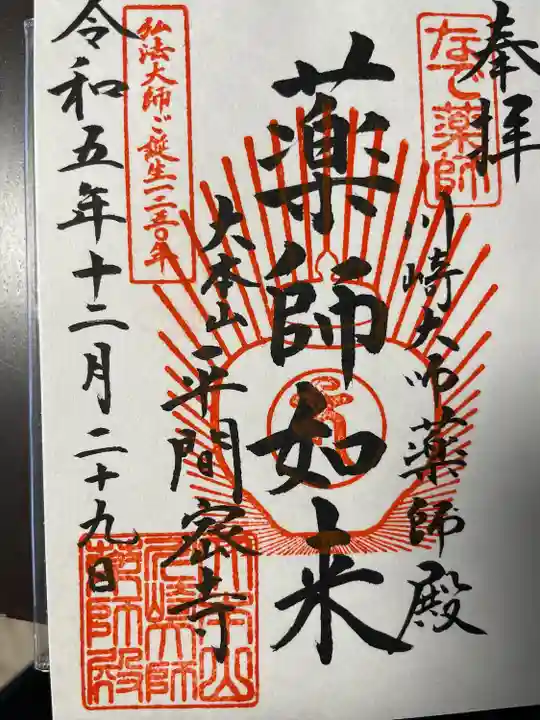 奉拝
なで薬師
川崎大師薬師殿
薬師如来
大本山
平間密寺
弘法大師ご誕生一二五〇年
令和五年十二月二十九日
大本山
川崎大師
薬師殿